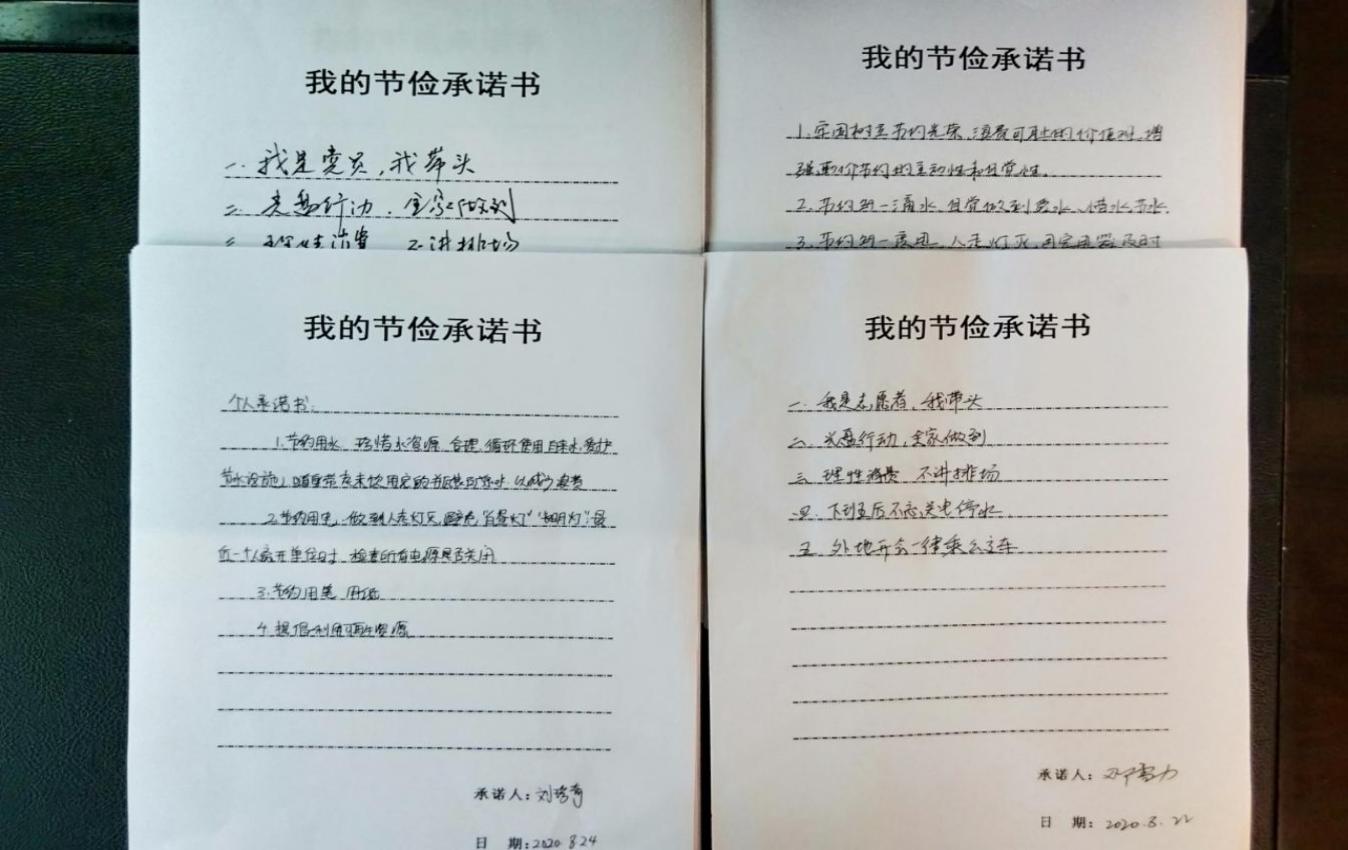 我的节俭承诺书
一、我是党员，我带头
二、光盘行动，全家做到
三、理性消费 不讲排场
我的节俭承诺书
1.牢固树立节约光荣、浪费可耻的价值观，增
强勤俭节约的主动性和自觉性。
2.节约每一滴水，自觉做到爱水、惜水、节水.
3.节约每一度电，人走灯灭，用完电器及时
我的节俭承诺书
个人承诺书：
1.节约用水，珍惜水资源，合理、循环使用自来水.爱护
节水设施，随身带走未饮用完的瓶装饮用水，以减少浪费
2.节约用电，做到人走灯灭，避免“白昼灯”“长明灯”；最
后一个人离开单位时，检查所有电源是否关闭
3.节约用笔、用纸
4.提倡利用可再生资源
承诺人：刘
日 期：2020.8.24
我的节俭承诺书
一、我是志愿者，我带头
二、光盘行动，全家做到
三、理性消费 不讲排场
四、下班后不忘关电停水.
五、外地开会一律乘公交车
承诺人：
日 期：2020.8.22